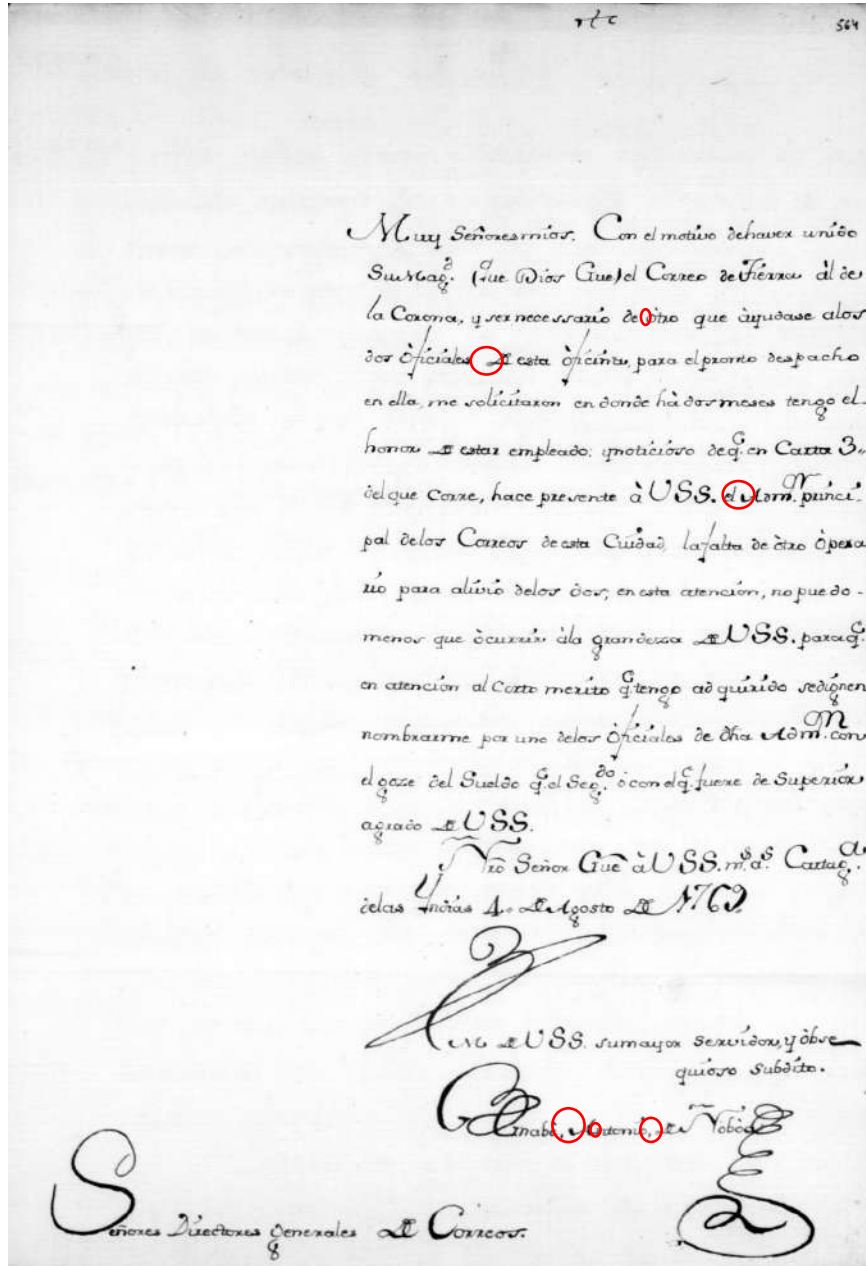 rtc
564
Muy Señores mios. Con el motivo dehaver unido
Su Mag.ᵈ (que Dios Gue) el Correo de Tierra àl de
la Corona, y ser necessario de òtro que àyudase alos
dos òficiales de esta òficina, para el pronto despacho
en ella, me solicitaron en donde hà dos meses tengo el
honor de estar empleado: ynoticioso deq.ᵉ en Carta 3,,
del que Corre, hace presente à USS. el Adm.ᵒʳ princi-
pal delos Correos de esta Ciudad, la falta de òtro òpera
rio para alivio delos dos; en esta atención, no puedo -
menos que òcurrir àla grandeza de USS. paraq.ᵉ
en atención al Corto merito q.ᵉ tengo adquirido sedignen
nombrarme por uno delos òficiales de dha Adm.ᵒⁿ con
el goze del Sueldo q.ᵉ el Seg.ᵈᵒ ò con el q.ᵉ fuere de Superior
agrado de USS.
Nro Señor Gue à USS. m.ˢ a.ˢ Cartag.ᵃ
delas Yndias 4,, de Agosto de 1769.
BM de USS. sumayor Servidor, y òbse
quioso Subdito.
Antonio, de
Señores Directores generales de Correos.